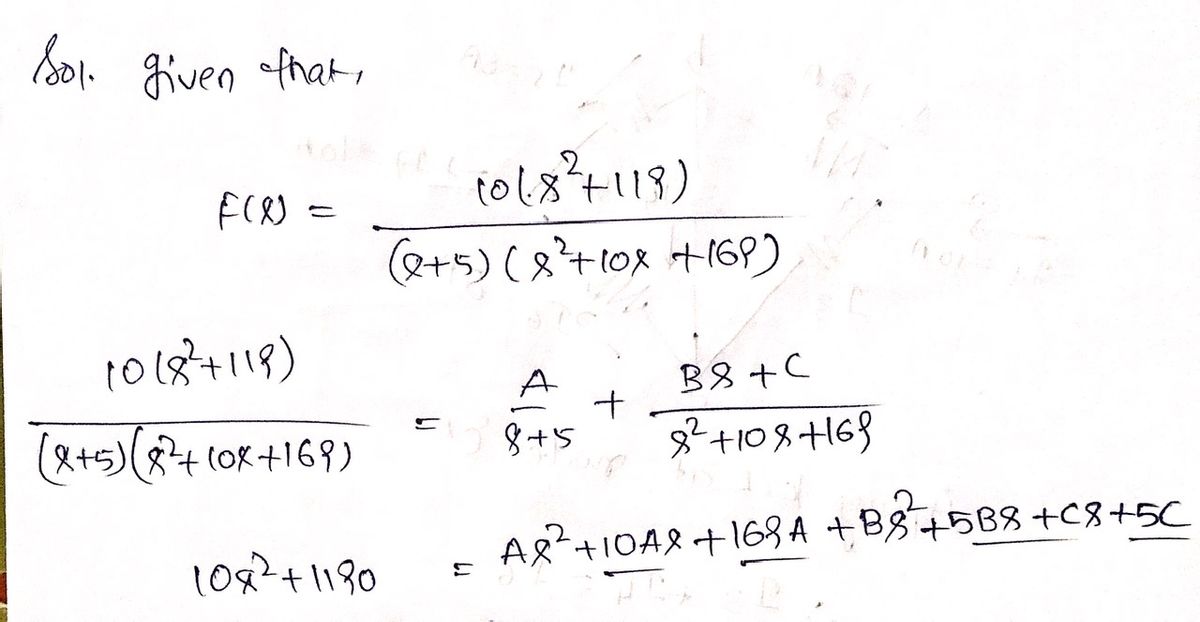 Sol. given that,
F(s) = 10(s²+119) / (s+5)(s²+10s+169)
10(s²+119) / (s+5)(s²+10s+169) = A / s+5 + Bs+C / s²+10s+169
10s²+1190 = As²+10As+169A+Bs²+5Bs+Cs+5C